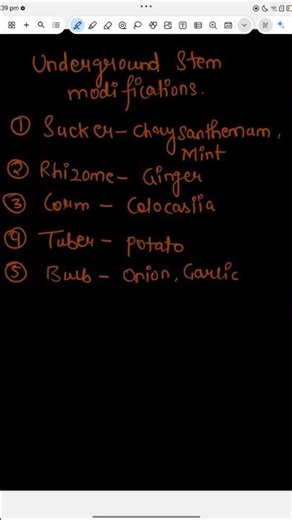 39 pm
Underground Stem
modifications.
① Sucker - Chrysanthemum,
Mint
② Rhizome - Ginger
③ Corm - Colocasiia
④ Tuber - potato
⑤ Bulb - Onion, Garlic